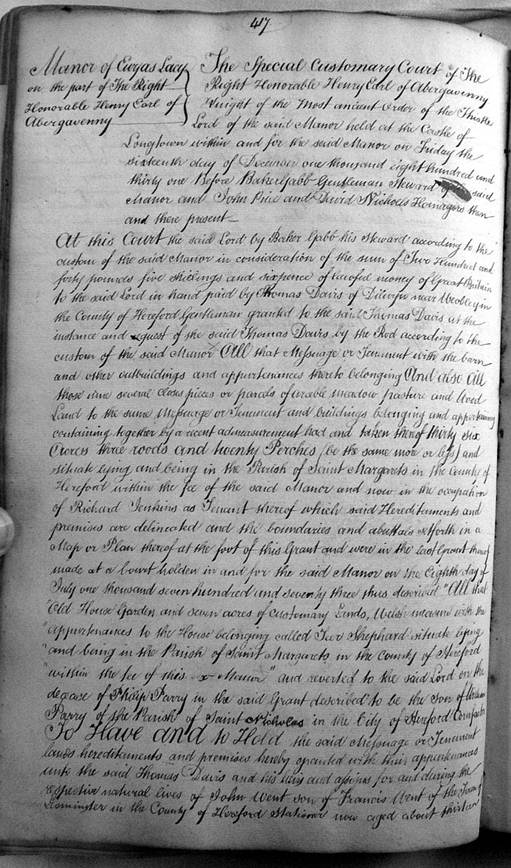 417
Manor of Ewyas Lacy
on the part of The Right
Honorable Henry Earl of
Abergavenny
The Special Customary Court of The
Right Honorable Henry Earl of Abergavenny
Knight of the Most ancient Order of the Thistle
Lord of the said Manor held at the Castle of
Longtown within and for the said Manor on Friday the
sixteenth day of December one thousand eight hundred and
thirty one Before Baker Gabb Gentleman Steward of the said
Manor and John Price and David Nicholls Homagers then
and there present
At this Court the said Lord by Baker Gabb his Steward according to the
custom of the said Manor in consideration of the sum of Two Hundred and
forty pounds five shillings and sixpence of lawful money of Great Britain
to the said Lord in hand paid by Thomas Davis of Dilwyn near Weobley in
the County of Hereford Gentleman granted to the said Thomas Davis at the
instance and request of the said Thomas Davis by the Rod according to the
custom of the said Manor All that Messuage or Tenement with the barn
and other outbuildings and appurtenances thereto belonging And also All
those nine several closes pieces or parcels of arable meadow pasture and Wood
Land to the same Messuage or Tenement and buildings belonging and appertaining
containing together by a recent admeasurement had and taken thereof thirty six
Acres three roods and twenty Perches (be the same more or less) and
situate lying and being in the Parish of Saint Margarets in the County of
Hereford within the fee of the said Manor and now in the occupation
of Richard Jenkins as Tenant thereof which said Hereditaments and
premises are delineated and the boundaries and abuttals setforth in a
Map or Plan thereof at the foot of this Grant and were in the Last Grant thereof
made at a Court holden in and for the said Manor on the Eighth day of
July one thousand seven hundred and seventy three thus described "All that
"Old House Garden and seven acres of Customary Lands, Welsh measure with the
"appurtenances to the House belonging called Shephard situate lying
"and being in the Parish of Saint Margarets in the County of Hereford
"within the fee of this Manor" and reverted to the said Lord on the
decease of Philip Parry in the said Grant described to be the Son of William
Parry of the Parish of Saint Nicholas in the City of Hereford
To Have and to Hold the said Messuage or Tenement
lands hereditaments and premises hereby granted with their appurtenances
unto the said Thomas Davis and his heirs and assigns for and during the
respective natural lives of John Went son of Francis Went of the Town of
Leominster in the County of Hereford Stationer now aged about thirteen